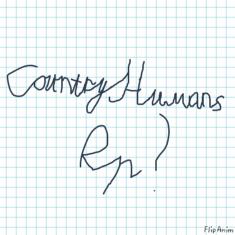 CountryHumans
Rp?
FlipAnim